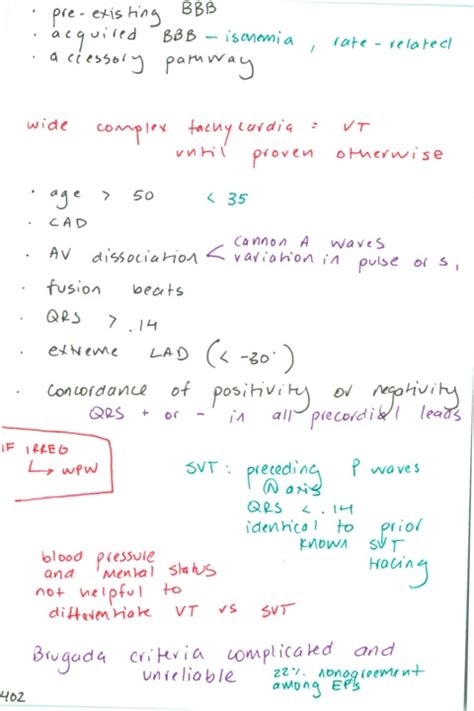 · pre-existing BBB
· acquired BBB - ischemia, rate-related
· accessory pathway
wide complex tachycardia = VT
until proven otherwise
· age > 50 < 35
· CAD
· AV dissociation < cannon A waves
variation in pulse or S1
· fusion beats
· QRS > .14
· extreme LAD (< -30°)
· concordance of positivity or negativity
QRS + or - in all precordial leads
IF IRREG
↳ WPW
SVT: preceding P waves
Ⓝ axis
QRS < .14
identical to prior
known SVT
tracing
blood pressure
and mental status
not helpful to
differentiate VT vs SVT
Brugada criteria complicated and
unreliable 22% nonagreement
among EPs
402